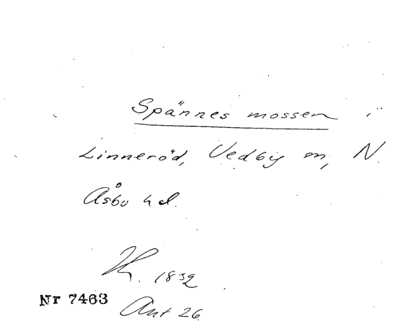 Spännes mossen i
Linneröd, Vedby m, N
Åsbo hd.
1832
Nr 7463
Ant 26